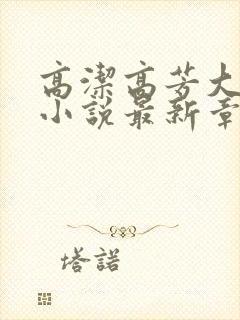 高潔高芳大
小說最新章
塔諾